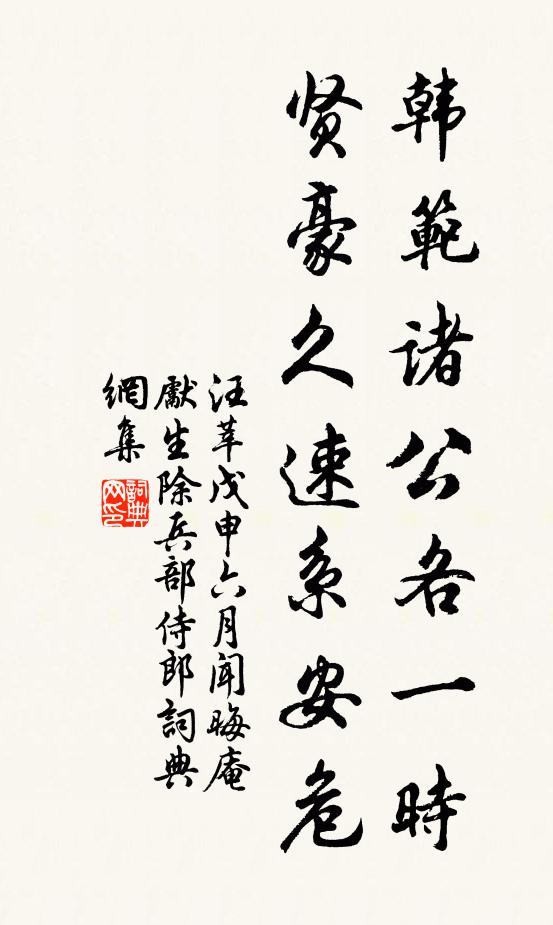 韩範诸公各一時
贤豪久速系安危
汪莘戊申六月闻晦庵
獻生除兵部侍郎詞典
網集
詞典網印